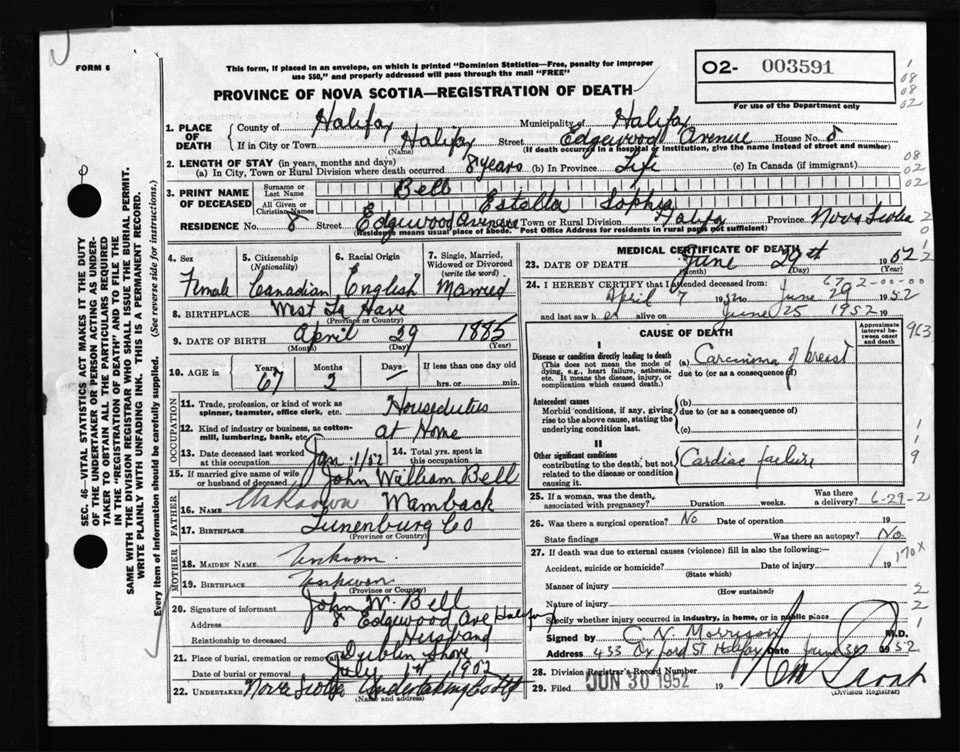 FORM 6
This form, if placed in an envelope, on which is printed "Dominion Statistics—Free, penalty for improper
use $50," and properly addressed will pass through the mail "FREE"
02- 003591
For use of the Department only
PROVINCE OF NOVA SCOTIA—REGISTRATION OF DEATH
1. PLACE OF DEATH
County of Halifax Municipality of Halifax
If in City or Town Halifax Street Edgewood Avenue House No. 8
(Name) (If death occurred in a hospital or institution, give the name instead of street and number)
2. LENGTH OF STAY (in years, months and days)
(a) In City, Town or Rural Division where death occurred 8 years (b) In Province Life (c) In Canada (if immigrant)
3. PRINT NAME OF DECEASED
Surname or Last Name Bell
All Given or Christian Names Estella Sophia
RESIDENCE No. 8 Street Edgewood Avenue Town or Rural Division Halifax Province Nova Scotia
(Residence means usual place of abode. Post Office Address for residents in rural parts not sufficient)
4. Sex 5. Citizenship (Nationality) 6. Racial Origin 7. Single, Married, Widowed or Divorced (write the word)
Female Canadian English Married
8. BIRTHPLACE West La Have
(Province or Country)
9. DATE OF BIRTH April 29 1885
(Month) (Day) (Year)
10. AGE in Years Months Days If less than one day old
67 2 — hrs. or min.
OCCUPATION
11. Trade, profession, or kind of work as spinner, teamster, office clerk, etc. Houseduties
12. Kind of industry or business, as cotton-mill, lumbering, bank, etc. at Home
13. Date deceased last worked at this occupation Jan 1/52 14. Total yrs. spent in this occupation
15. If married give name of wife or husband of deceased John William Bell
FATHER
16. NAME Unknown Wamback
17. BIRTHPLACE Lunenburg Co
(Province or Country)
MOTHER
18. MAIDEN NAME Unknown.
19. BIRTHPLACE Unknown
(Province or Country)
20. Signature of informant John W. Bell
Address 8 Edgewood Ave Halifax
Relationship to deceased Husband
21. Place of burial, cremation or removal Dublin Shore
Date of burial or removal July 1st 1952
22. UNDERTAKER Nova Scotia Undertaking Co Ltd
(Name and address)
MEDICAL CERTIFICATE OF DEATH
23. DATE OF DEATH June 29th 1952
(Month) (Day) (Year)
24. I HEREBY CERTIFY that I attended deceased from:
April 7 1952 to June 29 1952
and last saw her alive on June 25 1952
CAUSE OF DEATH
Approximate interval between onset and death
I
Disease or condition directly leading to death
(This does not mean the mode of dying, e.g., heart failure, asthenia, etc. It means the disease, injury, or complication which caused death.)
(a) Carcinoma of breast
due to (or as a consequence of)
Antecedent causes
Morbid conditions, if any, giving rise to the above cause, stating the underlying condition last.
(b)
due to (or as a consequence of)
(c)
II
Other significant conditions
contributing to the death, but not related to the disease or condition causing it.
Cardiac failure
25. If a woman, was the death associated with pregnancy? Duration weeks. Was there a delivery? 6-29-2
26. Was there a surgical operation? No Date of operation 19
State findings Was there an autopsy? No.
27. If death was due to external causes (violence) fill in also the following:—
Accident, suicide or homicide? Date of injury 19
(State which)
170X
Manner of injury
(How sustained)
Nature of injury
Specify whether injury occurred in industry, in home, or in public place
Signed by C. N. Morrison M.D.
Address 433 Oxford St Halifax Date June 30 1952
28. Division Registrar's Record Number
29. Filed JUN 30 1952 19
(Division Registrar)
SEC. 46—VITAL STATISTICS ACT MAKES IT THE DUTY
OF THE UNDERTAKER OR PERSON ACTING AS UNDER-
TAKER TO OBTAIN ALL THE PARTICULARS REQUIRED
IN THE "REGISTRATION OF DEATH" AND TO FILE THE
SAME WITH THE DIVISION REGISTRAR WHO SHALL ISSUE THE BURIAL PERMIT.
WRITE PLAINLY WITH UNFADING INK. THIS IS A PERMANENT RECORD.
Every item of information should be carefully supplied. (See reverse side for instructions.)